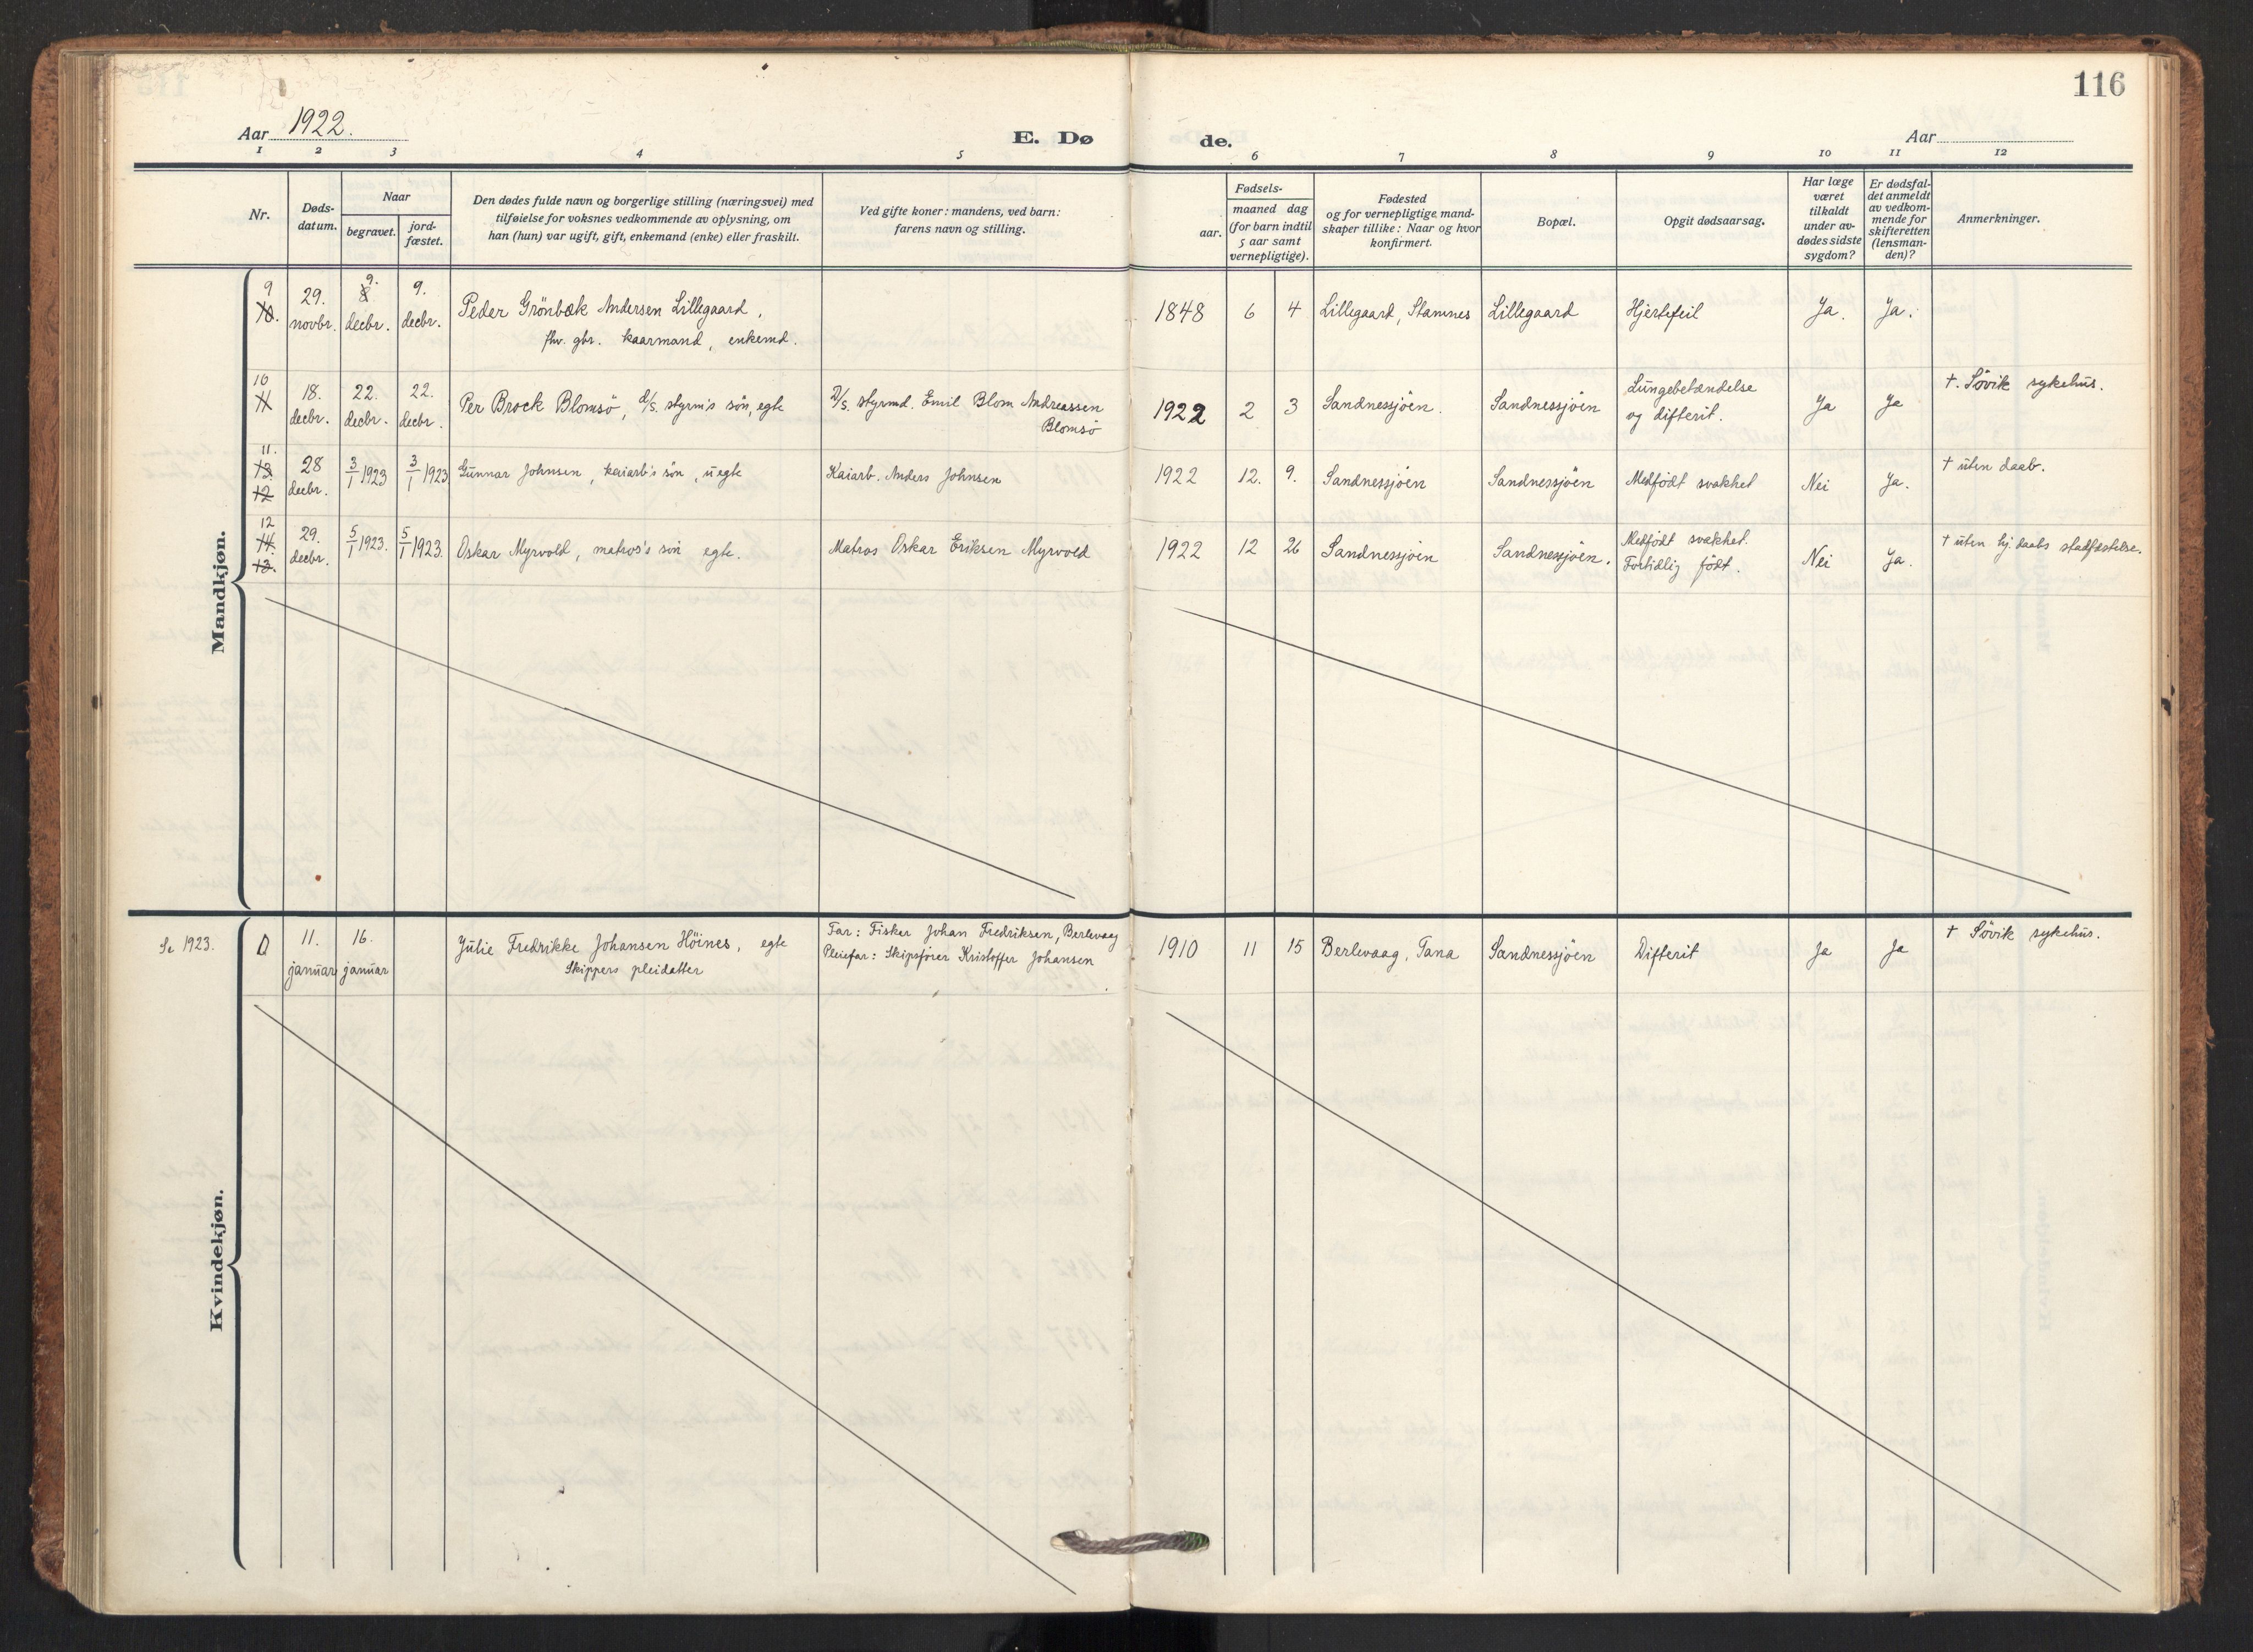 116
Aar 1922.
E. Dø
de.
Aar
1 2 3 4 5 6 7 8 9 10 11 12
Nr.
Døds-
datum.
Naar
begravet.
jord-
fæstet.
Den dødes fulde navn og borgerlige stilling (næringsvei) med
tilføielse for voksnes vedkommende av oplysning, om
han (hun) var ugift, gift, enkemand (enke) eller fraskilt.
Ved gifte koner: mandens, ved barn:
farens navn og stilling.
Fødsels-
aar.
maaned dag
(for barn indtil
5 aar samt
vernepligtige).
Fødested
og for vernepligtige mand-
skaper tillike: Naar og hvor
konfirmert.
Bopæl.
Opgit dødsaarsag.
Har læge
været
tilkaldt
under av-
dødes sidste
sygdom?
Er dødsfal-
det anmeldt
av vedkom-
mende for
skifteretten
(lensman-
den)?
Anmerkninger.
Mandkjøn.
9
10.
29.
novbr.
9.
8
decbr.
9.
decbr.
Peder Grönbæk Andersen Lillegaard,
fhv. gbr. kaarmand, enkemd.
1848 6 4 Lillegaard, Stamnes Lillegaard Hjertefeil Ja. Ja.
10
11
18.
decbr.
22.
decbr.
22.
decbr.
Per Brock Blomsö, d/s. styrm's sön, egte
D/s. styrmd. Emil Blom Andreassen
Blomsö
1922 2 3 Sandnessjöen. Sandnessjöen
Lungebetændelse
og difterit.
Ja Ja
†. Sövik sykehus.
11.
13.
12
28
decbr.
3/1 1923
3/1 1923
Gunnar Johnsen, kaiarb's sön, uegte
Kaiarb. Anders Johnsen
1922 12. 9. Sandnessjöen Sandnessjöen Medfödt svakhet Nei Ja.
† uten daab.
12
14.
13.
29.
decbr.
5/1 1923.
5/1 1923.
Oskar Myrvold, matros's sön egte.
Matros Oskar Eriksen Myrvold
1922 12 26 Sandnessjöen Sandnessjöen.
Medfödt svakhet.
Fortidlig födt.
Nei Ja.
† uten hj. daabs stadfæstelse.
Kvindekjøn.
Se 1923.
0
11.
januar
16.
januar
Julie Fredrikke Johansen Höines, egte
Skippers pleidatter
Far: Fisker Johan Fredriksen, Berlevaag
Pleiefar: Skipsförer Kristoffer Johansen
1910 11 15 Berlevaag, Tana Sandnessjöen Difterit Ja Ja
† Sövik sykehus.